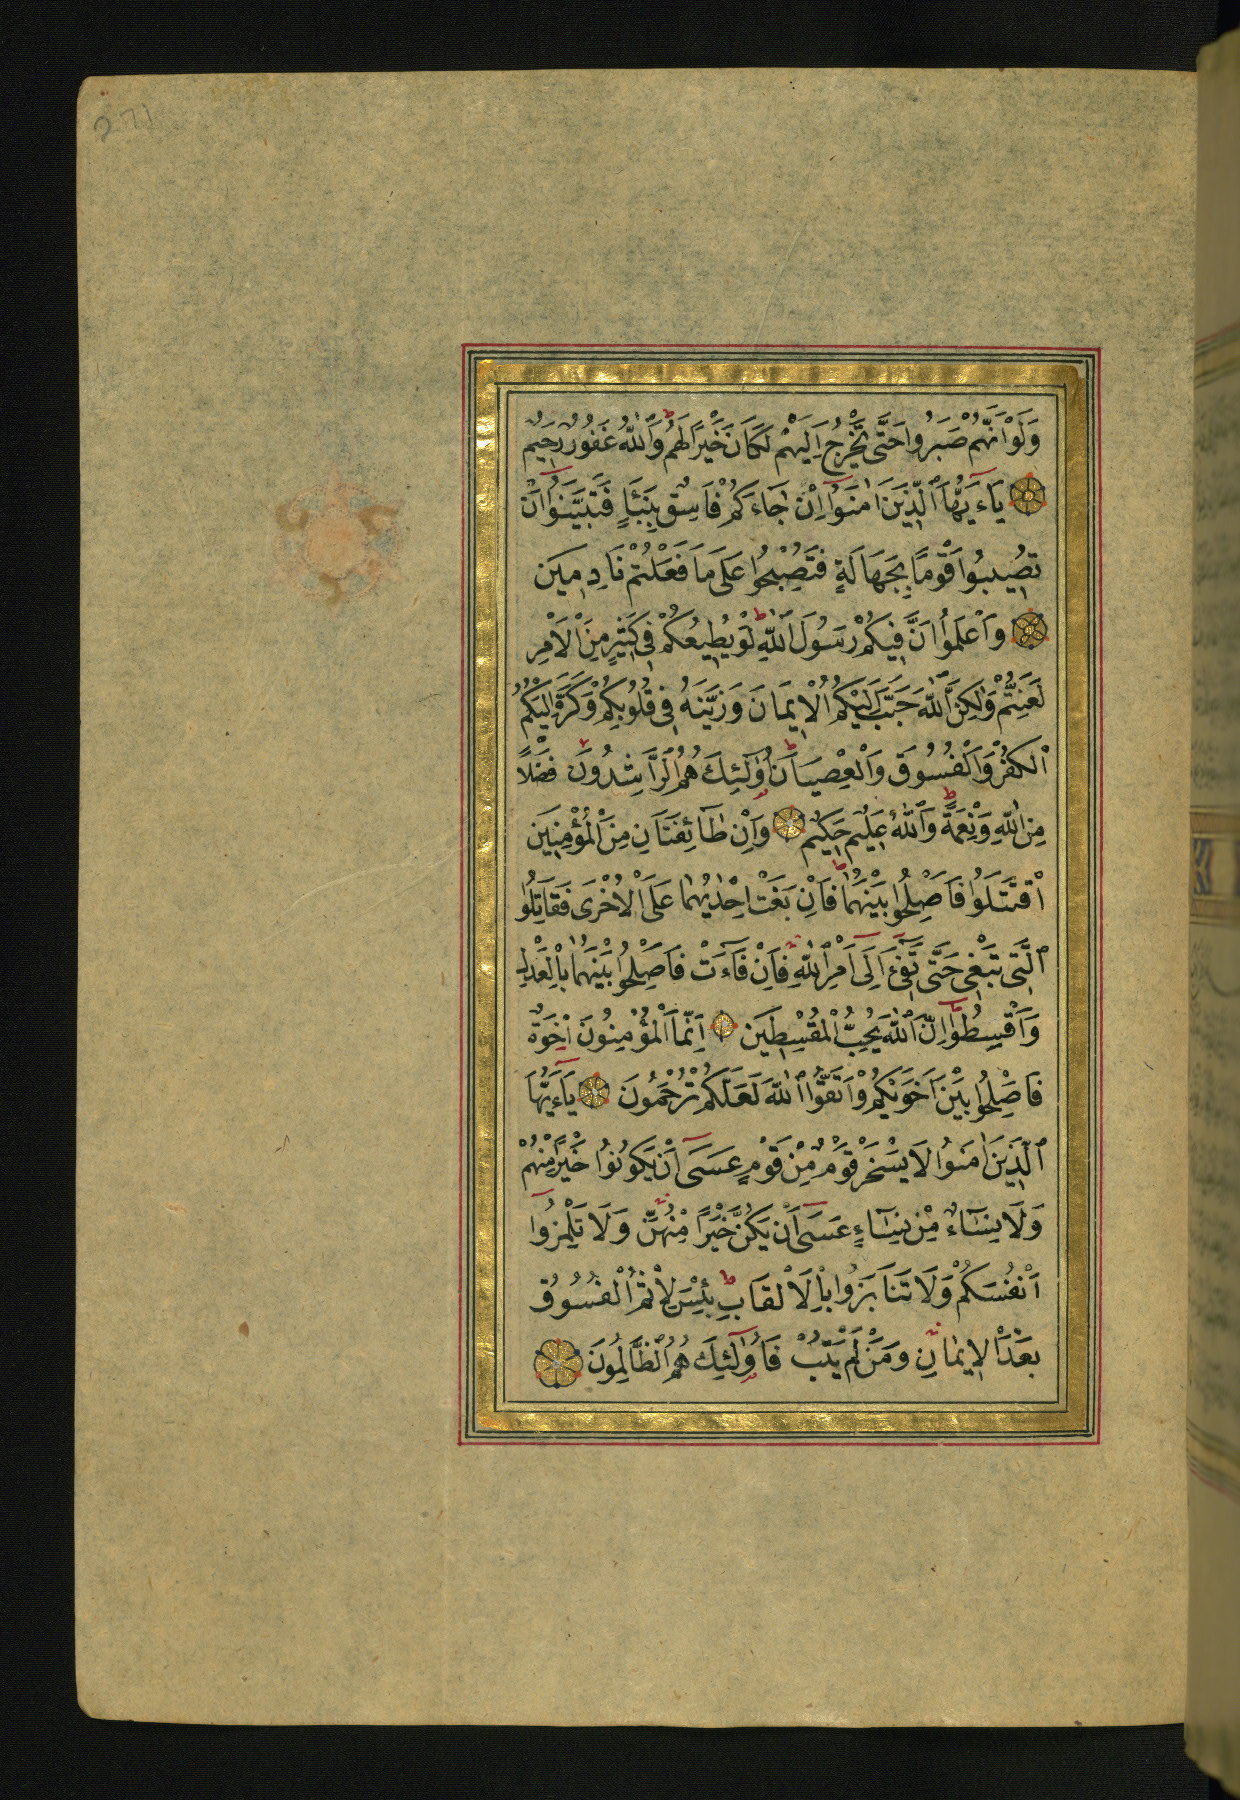 271
وَلَوْ اَنَّهُمْ صَبَرُوا حَتّٰى تَخْرُجَ اِلَيْهِمْ لَكَانَ خَيْرًا لَهُمْ وَاللّٰهُ غَفُورٌ رَحِيمٌ
يَاءَيُّهَا الَّذِينَ اٰمَنُوا اِنْ جَاءَكُمْ فَاسِقٌ بِنَبَأٍ فَتَبَيَّنُوا اَنْ
تُصِيبُوا قَوْمًا بِجَهَالَةٍ فَتُصْبِحُوا عَلٰى مَا فَعَلْتُمْ نَادِمِينَ
وَاعْلَمُوا اَنَّ فِيكُمْ رَسُولَ اللّٰهِ لَوْ يُطِيعُكُمْ فِى كَثِيرٍ مِنَ الْاَمْرِ
لَعَنِتُّمْ وَلٰكِنَّ اللّٰهَ حَبَّبَ اِلَيْكُمُ الْاِيمَانَ وَزَيَّنَهُ فِى قُلُوبِكُمْ وَكَرَّهَ اِلَيْكُمُ
الْكُفْرَ وَالْفُسُوقَ وَالْعِصْيَانَ اُولٰئِكَ هُمُ الرَّاشِدُونَ فَضْلًا
مِنَ اللّٰهِ وَنِعْمَةً وَاللّٰهُ عَلِيمٌ حَكِيمٌ وَاِنْ طَائِفَتَانِ مِنَ الْمُؤْمِنِينَ
اقْتَتَلُوا فَاَصْلِحُوا بَيْنَهُمَا فَاِنْ بَغَتْ اِحْدٰيهُمَا عَلَى الْاُخْرٰى فَقَاتِلُوا
الَّتِى تَبْغِى حَتّٰى تَفِىءَ اِلٰى اَمْرِ اللّٰهِ فَاِنْ فَاءَتْ فَاَصْلِحُوا بَيْنَهُمَا بِالْعَدْلِ
وَاَقْسِطُوا اِنَّ اللّٰهَ يُحِبُّ الْمُقْسِطِينَ اِنَّمَا الْمُؤْمِنُونَ اِخْوَةٌ
فَاَصْلِحُوا بَيْنَ اَخَوَيْكُمْ وَاتَّقُوا اللّٰهَ لَعَلَّكُمْ تُرْحَمُونَ يَاءَيُّهَا
الَّذِينَ اٰمَنُوا لَا يَسْخَرْ قَوْمٌ مِنْ قَوْمٍ عَسٰى اَنْ يَكُونُوا خَيْرًا مِنْهُمْ
وَلَا نِسَاءٌ مِنْ نِسَاءٍ عَسٰى اَنْ يَكُنَّ خَيْرًا مِنْهُنَّ وَلَا تَلْمِزُوا
اَنْفُسَكُمْ وَلَا تَنَابَزُوا بِالْاَلْقَابِ بِئْسَ الْاِسْمُ الْفُسُوقُ
بَعْدَ الْاِيمَانِ وَمَنْ لَمْ يَتُبْ فَاُولٰئِكَ هُمُ الظَّالِمُونَ